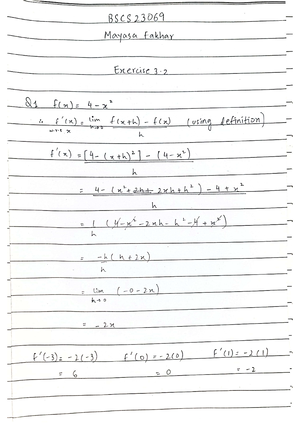 BSCS23069
Mayasa Fakhar
Exercise 3.2
Q1 f(x) = 4 - x²
∴ f'(x) = lim h→0 f(x+h) - f(x) / h (using definition)
f'(x) = [4 - (x+h)²] - (4 - x²) / h
= 4 - (x² + 2xh + h²) - 4 + x² / h
= 1/h (4 - x² - 2xh - h² - 4 + x²)
= -h(h + 2x) / h
= lim h→0 (-0 - 2x)
= -2x
f'(-3) = -2(-3) f'(0) = -2(0) f'(1) = -2(1)
= 6 = 0 = -2